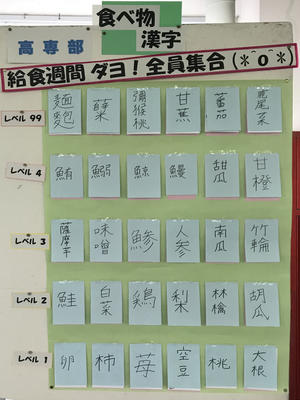 食べ物
漢字
高専部
給食週間 ダヨ！全員集合 (*^o^*)
レベル 99
麵麭
蕈
獼猴桃
甘蕉
蕃茄
鹿尾菜
レベル 4
鮪
鰯
鯨
鰻
甜瓜
甘橙
レベル 3
薩摩芋
味噌
鯵
人参
南瓜
竹輪
レベル 2
鮭
白菜
鶏
梨
林檎
胡瓜
レベル 1
卵
柿
苺
空豆
桃
大根